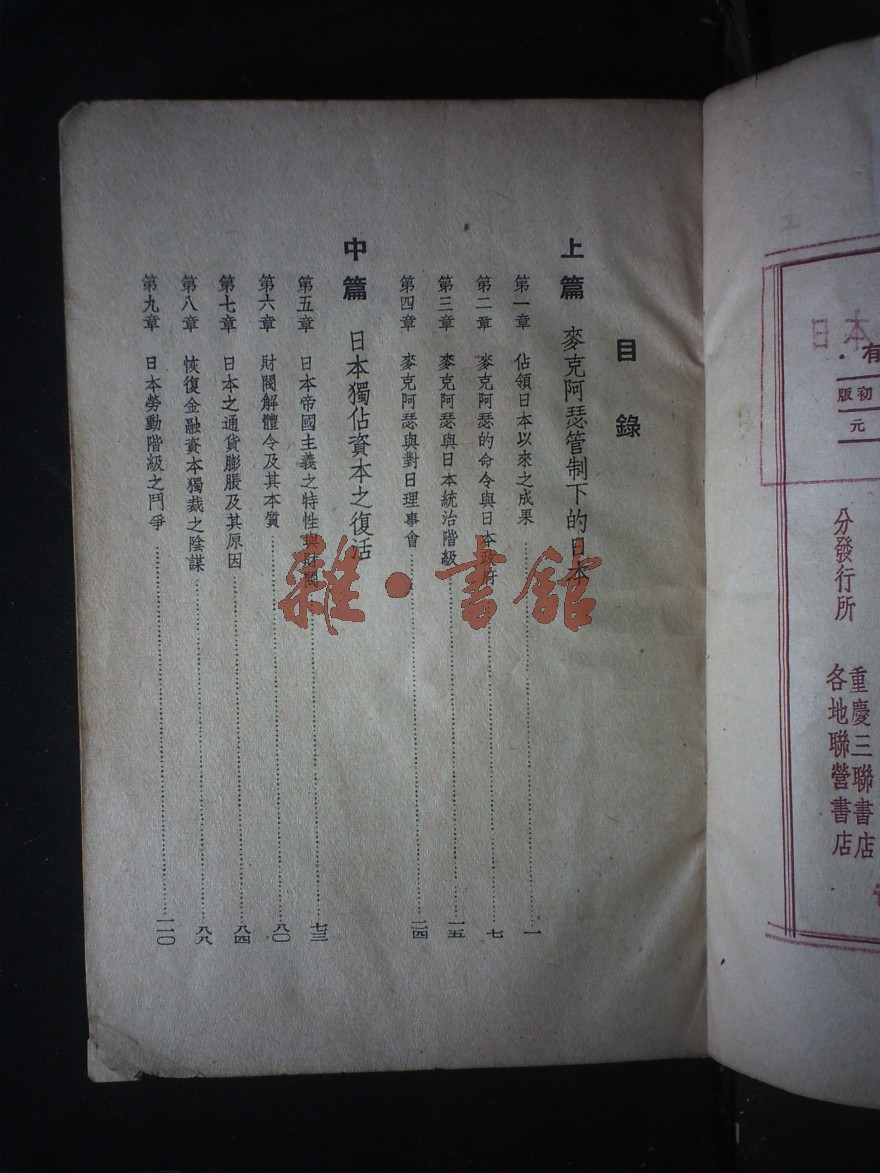 日本
有·
初版
元
分發行所
重慶三聯書店
各地聯營書店
目錄
上篇 麥克阿瑟管制下的日本
第一章 佔領日本以來之成果……一
第二章 麥克阿瑟的命令與日本政府……七
第三章 麥克阿瑟與日本統治階級……一五
第四章 麥克阿瑟與對日理事會……二四
中篇 日本獨佔資本之復活
第五章 日本帝國主義之特性與財閥……七三
第六章 財閥解體令及其本質……八〇
第七章 日本之通貨膨脹及其原因……八四
第八章 恢復金融資本獨裁之陰謀……八八
第九章 日本勞動階級之鬥爭……一一〇
雜·書館